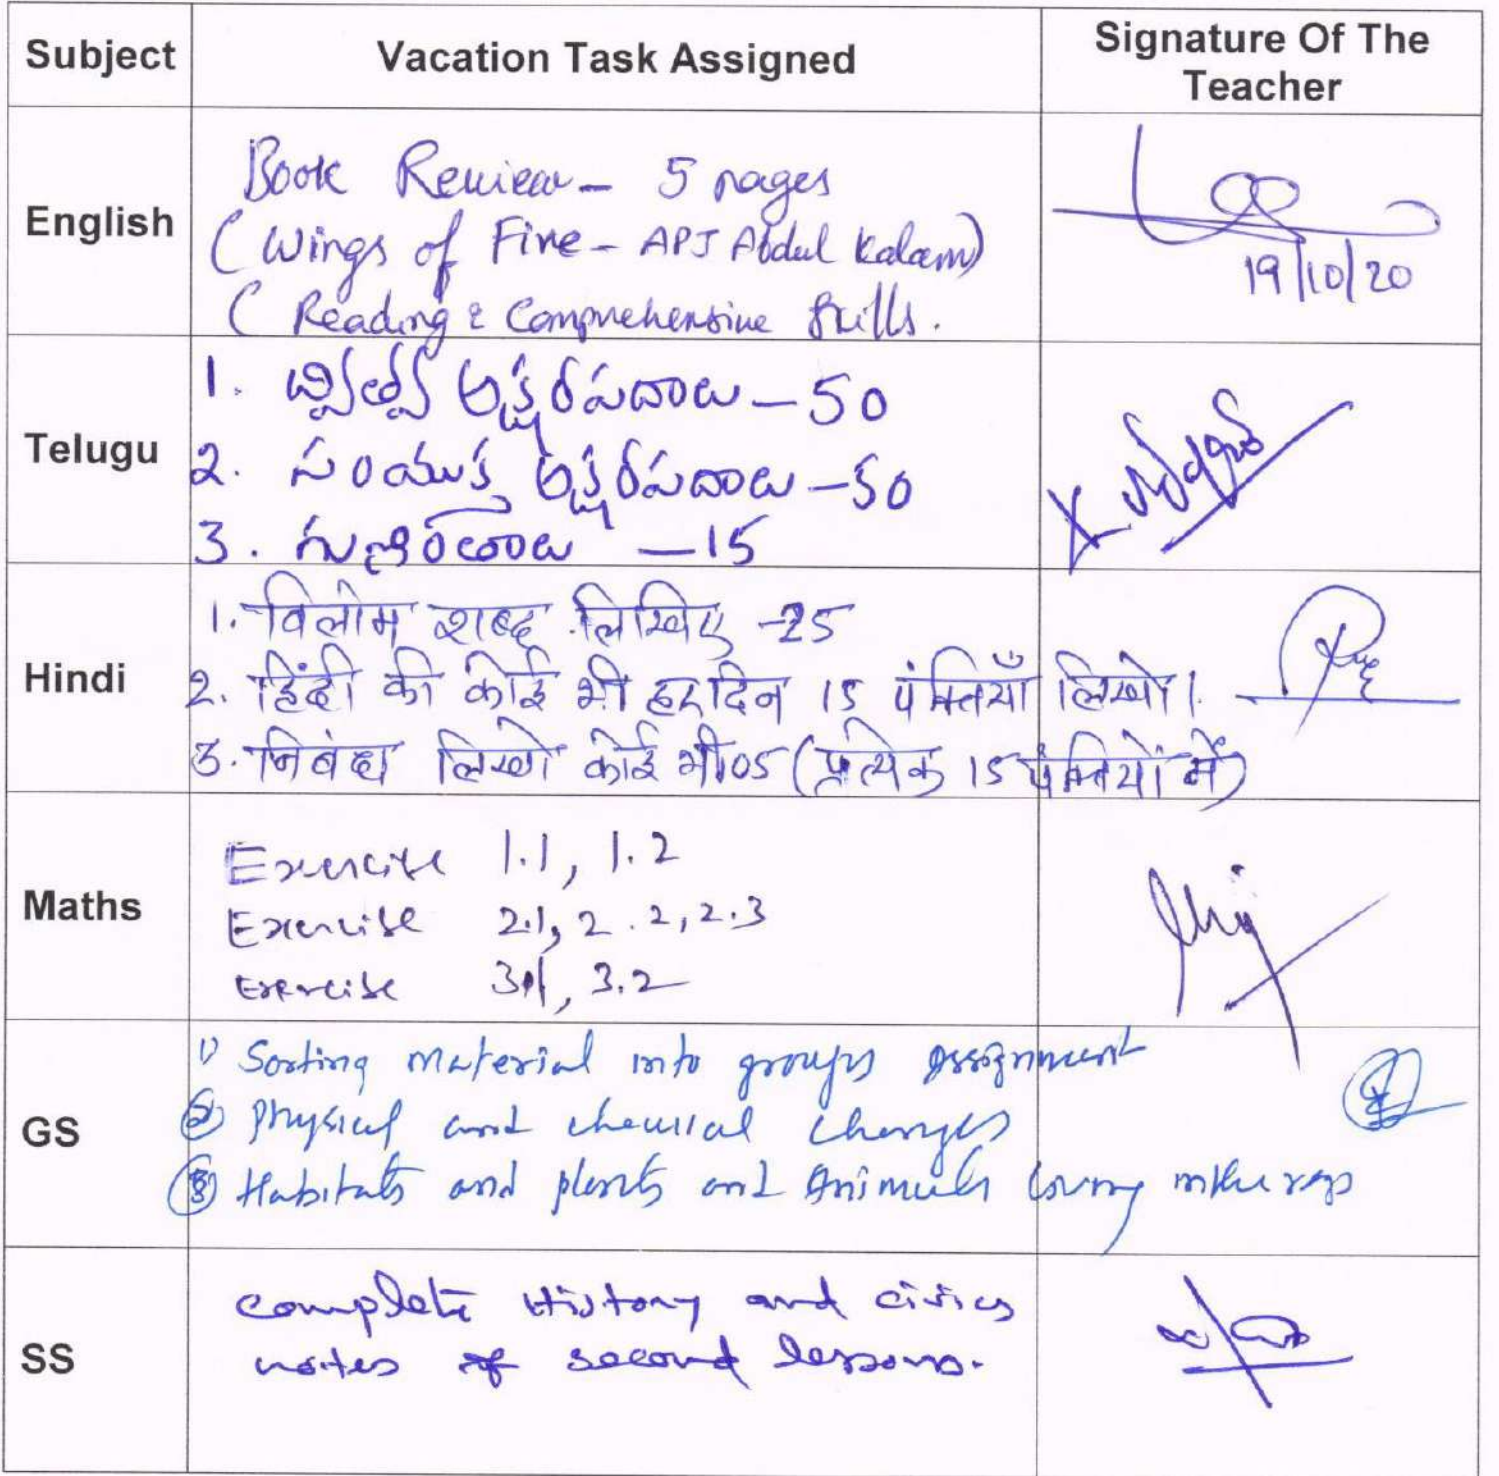 Subject Vacation Task Assigned Signature Of The Teacher
English
Book Review - 5 pages
(Wings of Fire - APJ Abdul Kalam)
( Reading & Comprehensive Skills.
19/10/20
Telugu
1. ద్విత్వ అక్షరపదాలు - 50
2. సంయుక్త అక్షరపదాలు - 50
3. గుణింతాలు - 15
Hindi
1. विलोम शब्द लिखिए - 25
2. हिंदी की कोई भी हर दिन 15 पंक्तियाँ लिखो।
3. निबंध लिखो कोई भी 05 (प्रत्येक 15 पंक्तियों में)
Maths
Exercise 1.1, 1.2
Exercise 2.1, 2.2, 2.3
Exercise 3.1, 3.2
GS
1) Sorting material into groups assignment
2) Physical and chemical changes
3) Habitats and plants and Animals
SS
complete History and civics
notes of second lessons.